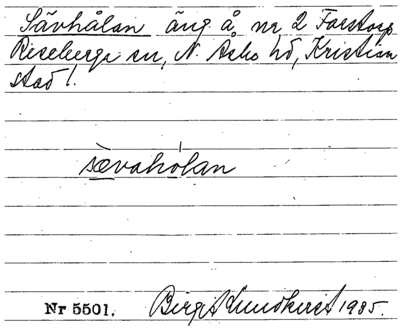 Sävhålan äng å nr 2 Forstorp
Riseberga sn, N. Åsbo hd, Kristian
stad l.
sævahólan
Nr 5501. Birgit Lundkvist 1935.